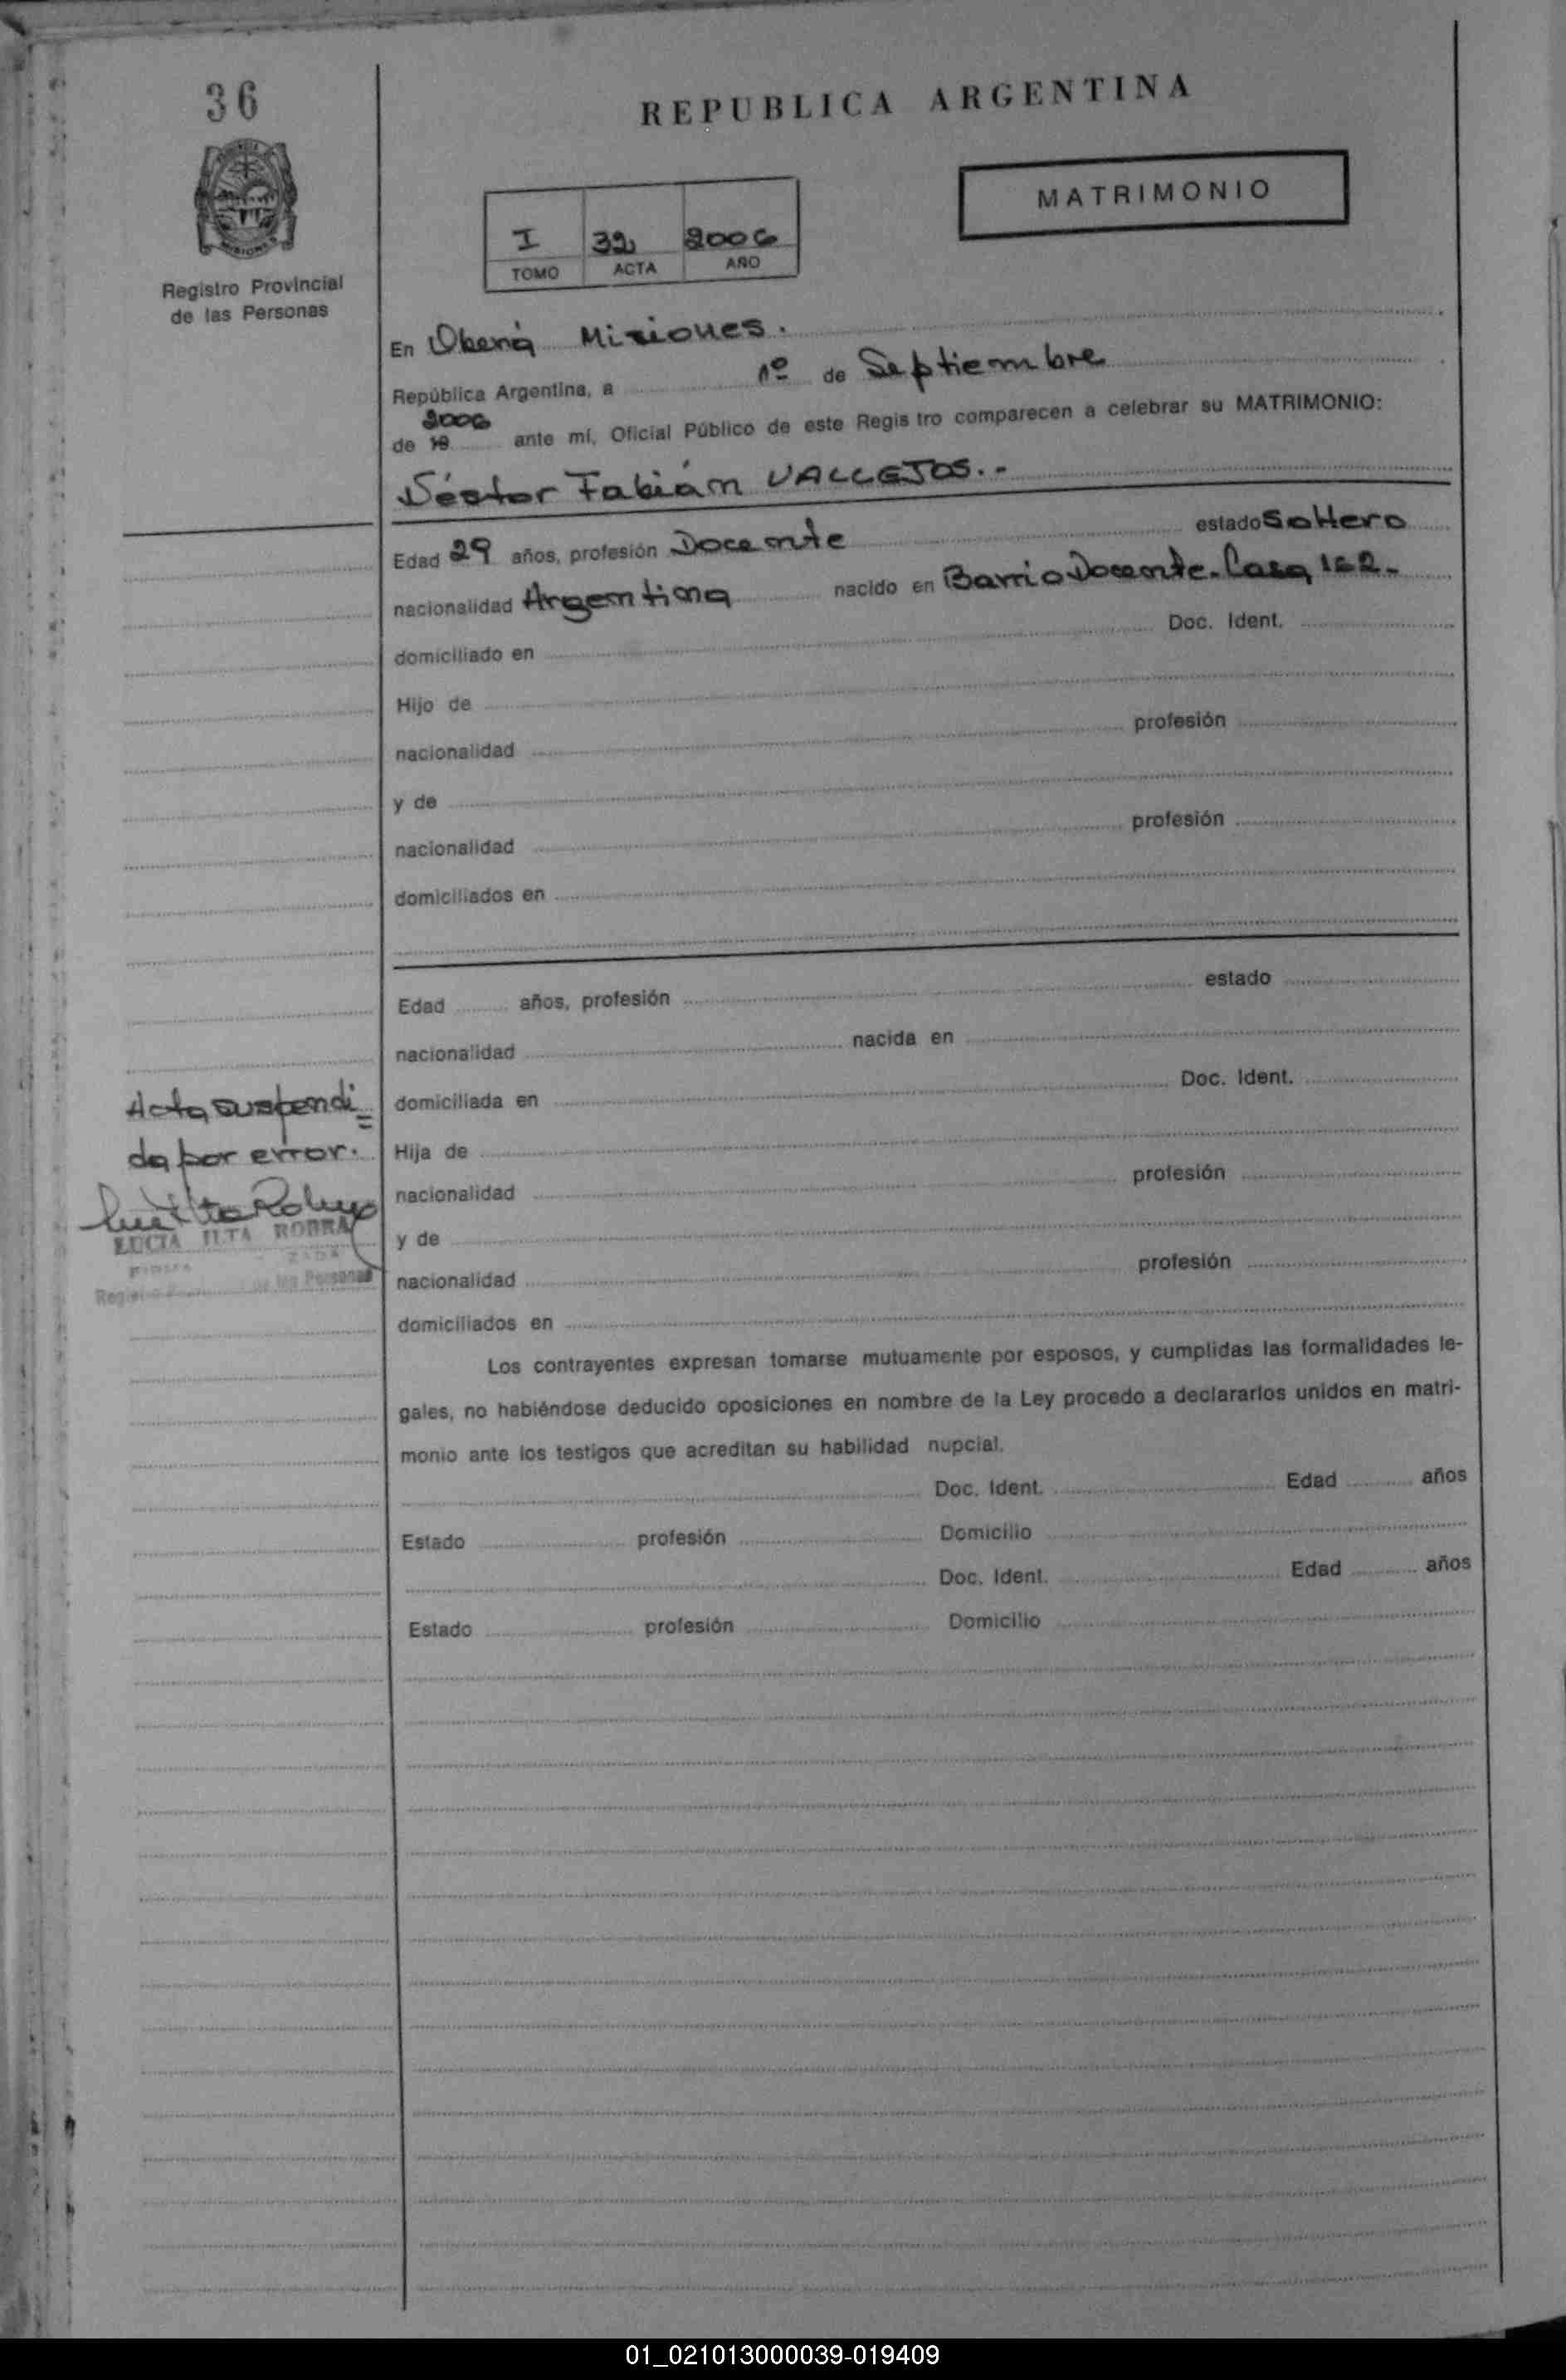 36
REPUBLICA ARGENTINA
MATRIMONIO
I 32 2006
TOMO ACTA AÑO
Registro Provincial
de las Personas
En Oberá Misiones.
República Argentina, a 1º de Septiembre
2006
de 19 ante mí, Oficial Público de este Regis tro comparecen a celebrar su MATRIMONIO:
Néstor Fabián VALLEJOS.-
Edad 29 años, profesión Docente estado Soltero
nacionalidad Argentina nacido en Barrio Docente. Casa 162-
domiciliado en Doc. Ident.
Hijo de
nacionalidad profesión
y de
nacionalidad profesión
domiciliados en
Edad años, profesión estado
nacionalidad nacida en
domiciliada en Doc. Ident.
Hija de
nacionalidad profesión
y de
nacionalidad profesión
domiciliados en
Acta suspendi=
da por error.
LUCIA ILTA
Personas
Los contrayentes expresan tomarse mutuamente por esposos, y cumplidas las formalidades le-
gales, no habiéndose deducido oposiciones en nombre de la Ley procedo a declararlos unidos en matri-
monio ante los testigos que acreditan su habilidad nupcial.
Doc. Ident. Edad años
Estado profesión Domicilio
Doc. Ident. Edad años
Estado profesión Domicilio
01_021013000039-019409